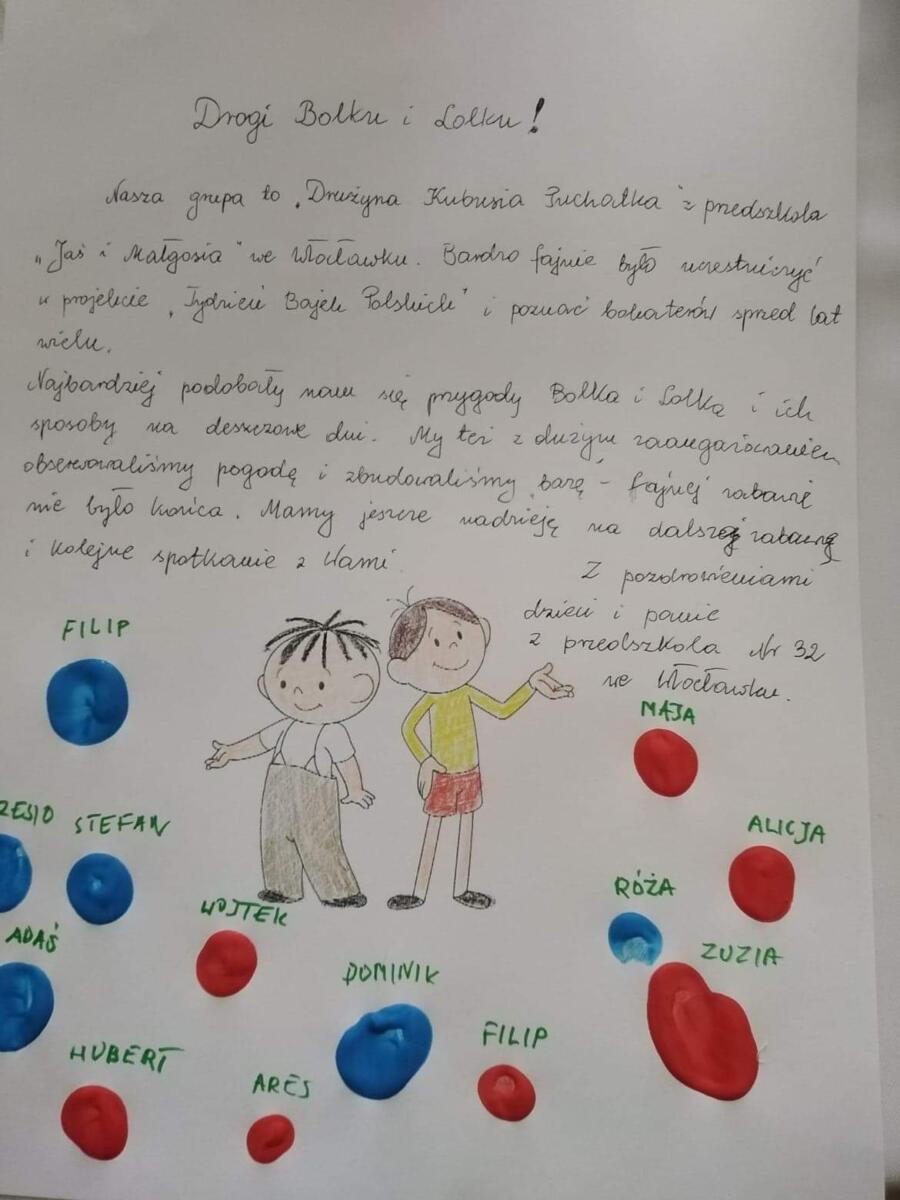 Drogi Bolku i Lolku!
Nasza grupa to „Drużyna Kubusia Puchatka" z przedszkola
„Jaś i Małgosia" we Włocławku. Bardzo fajnie było uczestniczyć
w projekcie „Tydzień Bajek Polskich" i poznać bohaterów sprzed lat
wielu.
Najbardziej podobały nam się przygody Bolka i Lolka i ich
sposoby na deszczowe dni. My też z dużym zaangażowaniem
obserwowaliśmy pogodę i zbudowaliśmy bazę - fajnej zabawie
nie było końca. Mamy jeszcze nadzieję na dalszą zabawę
i kolejne spotkanie z Wami.
Z pozdrowieniami
dzieci i panie
z przedszkola Nr 32
we Włocławku.
FILIP
MAJA
ZESIO STEFAN
ALICJA
RÓŻA
WOJTEK
ADAŚ
ZUZIA
DOMINIK
FILIP
HUBERT
ARES